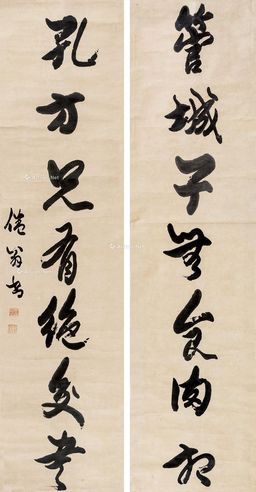 管城子無食肉相
孔方兄有絕交書
倦翁書